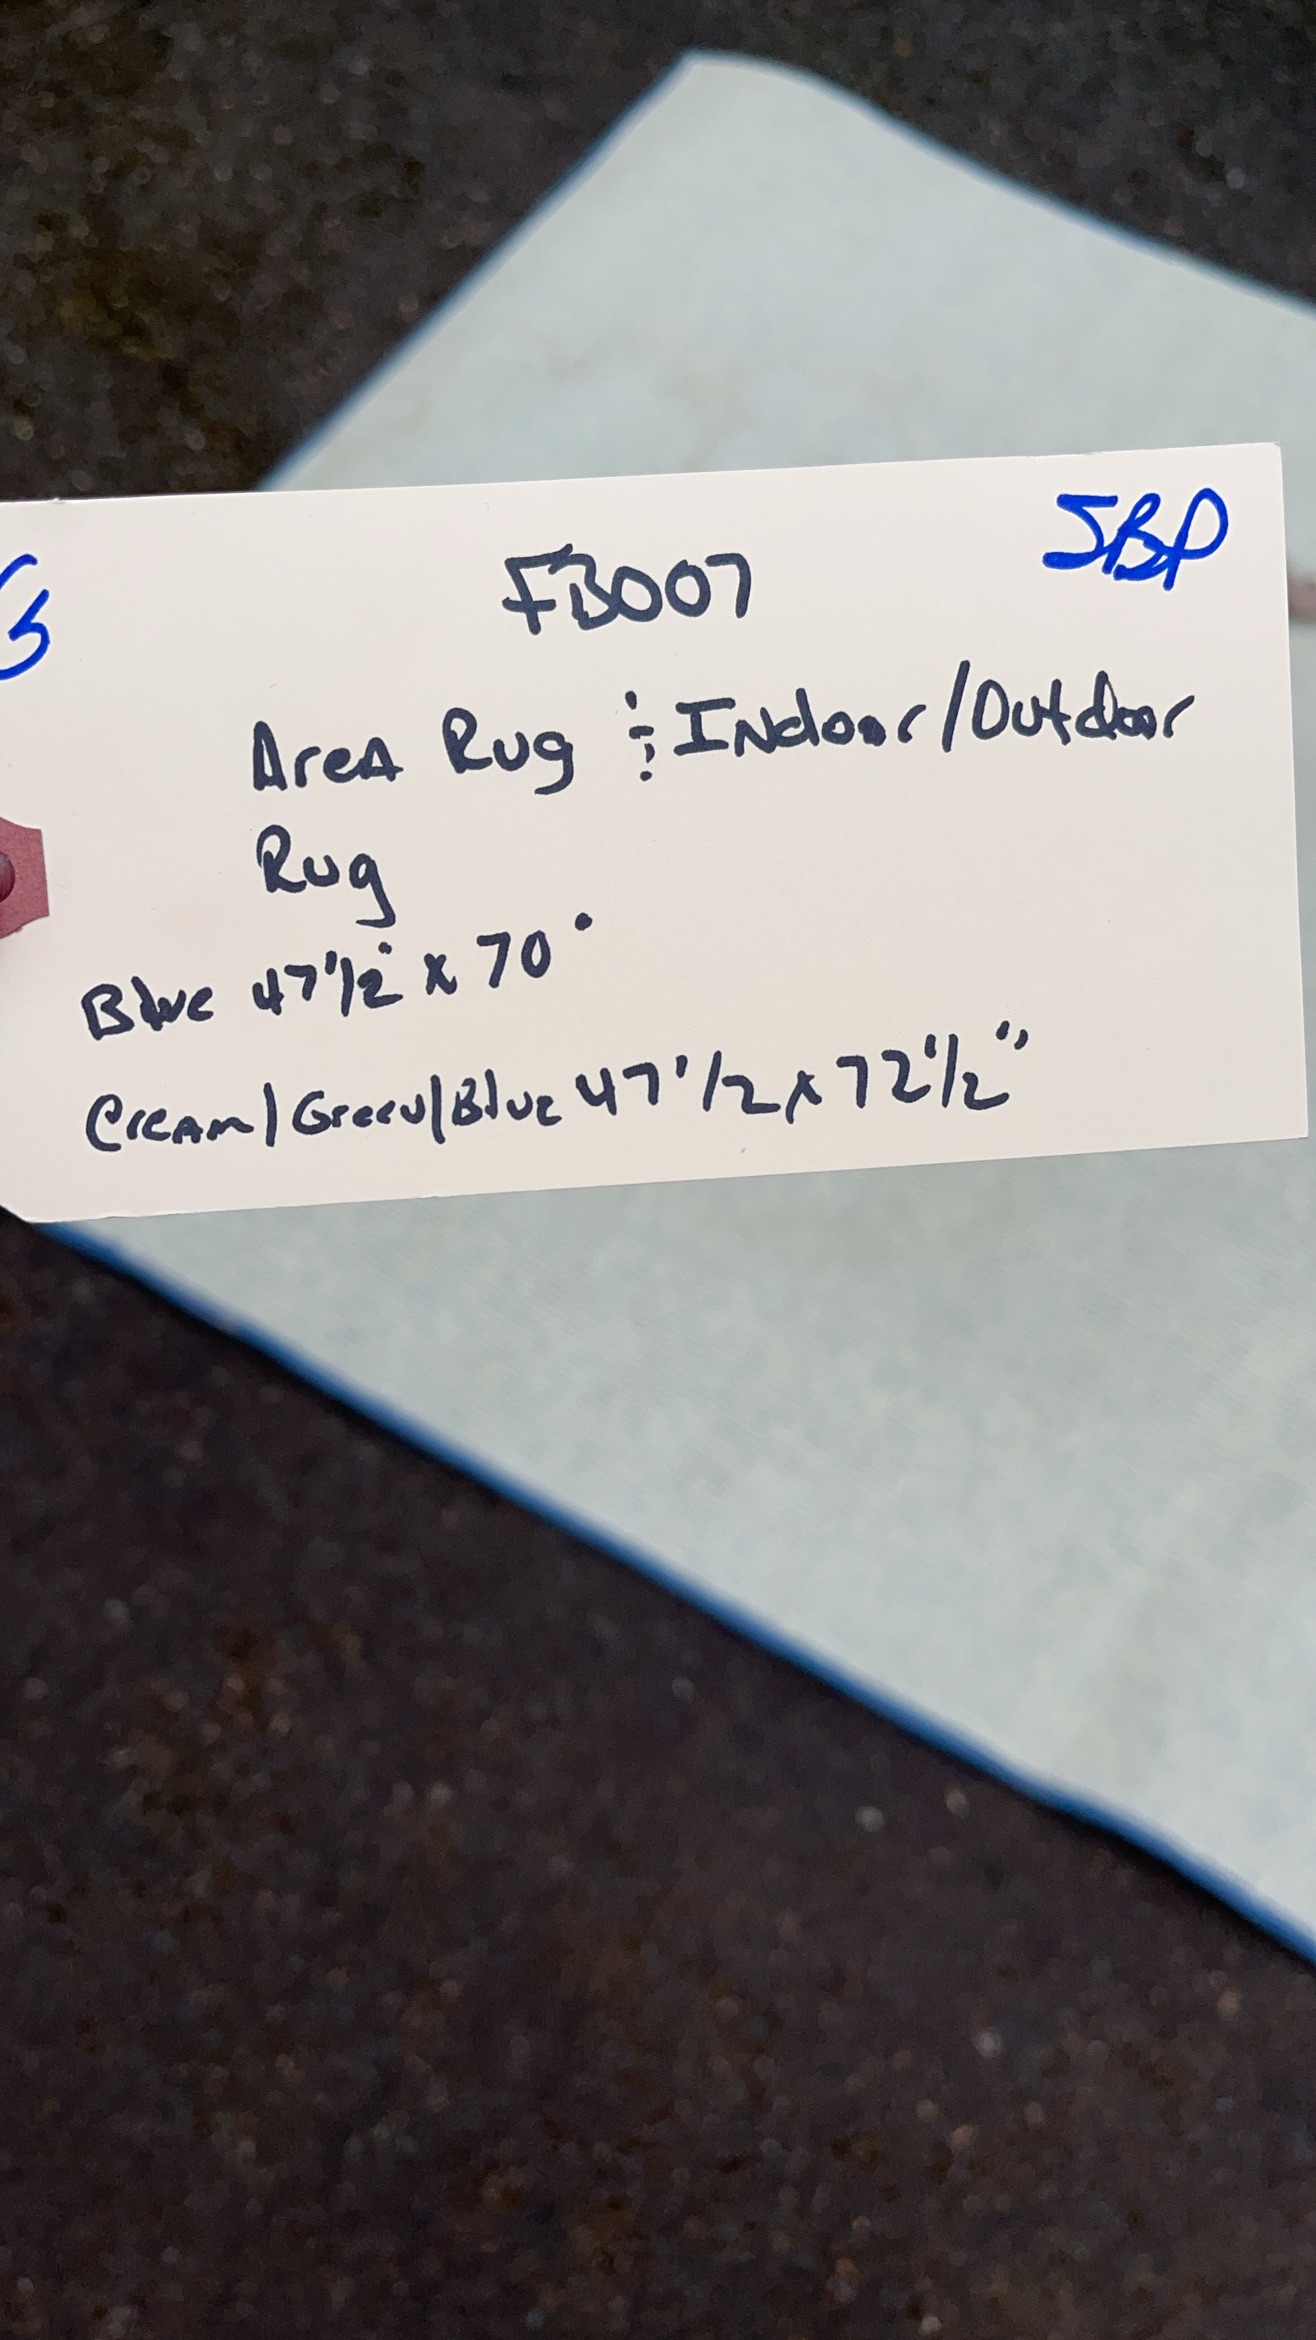 SBP
FB007
Area Rug ÷ Indoor/Outdoor
Rug
Blue 47 1/2" x 70"
Cream/Green/Blue 47 1/2 x 72 1/2"